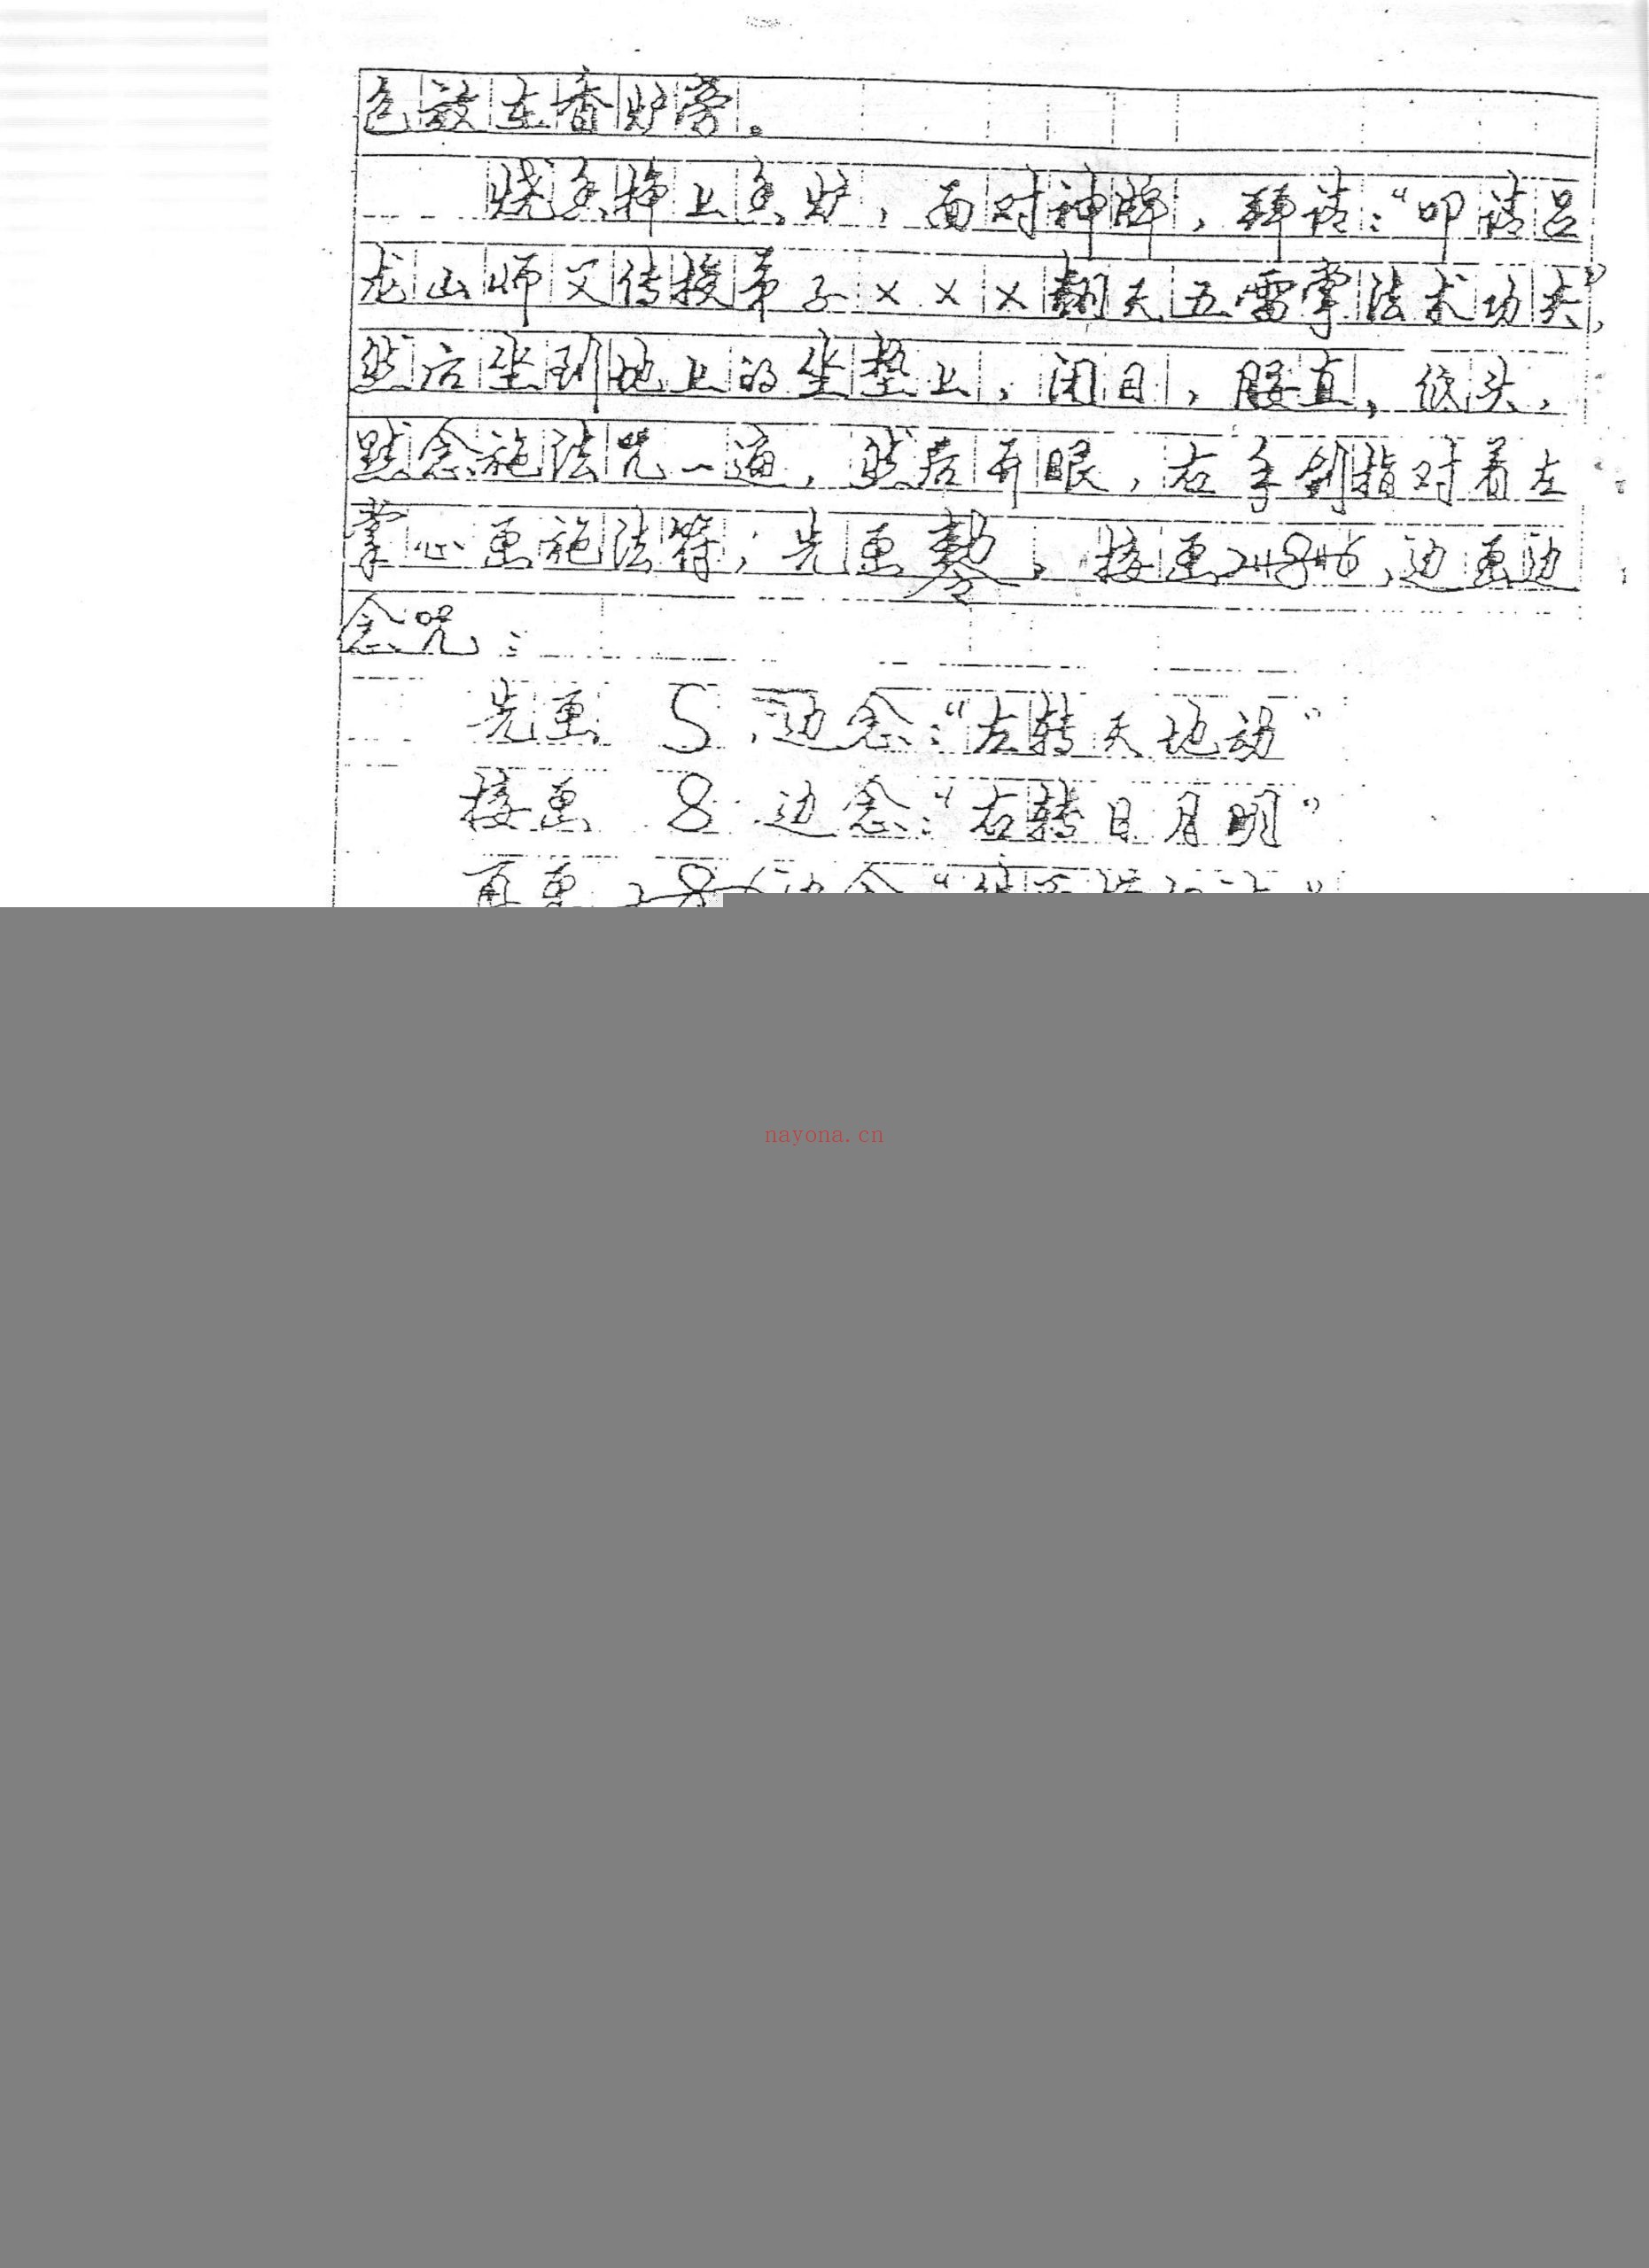 包放在香炉旁。
烧香插上香炉，面对神牌，拜请：“叩请吕
龙山师父传授弟子×××翻天五雷掌法术功夫”，
然后坐到地上的坐垫上，闭目，腰直，低头，
默念施法咒一遍，然后开眼，右手剑指对着左
掌心画施法符，先画，接画，边画边
念咒：
先画 5，边念：“左转天地动”
接画 8 边念：“右转日月明”
再画 边念“
nayona.cn